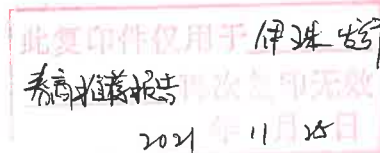 此复印件仅用于 伊珠
券商推荐报告 再次复印无效
2021 年 11 月 25 日